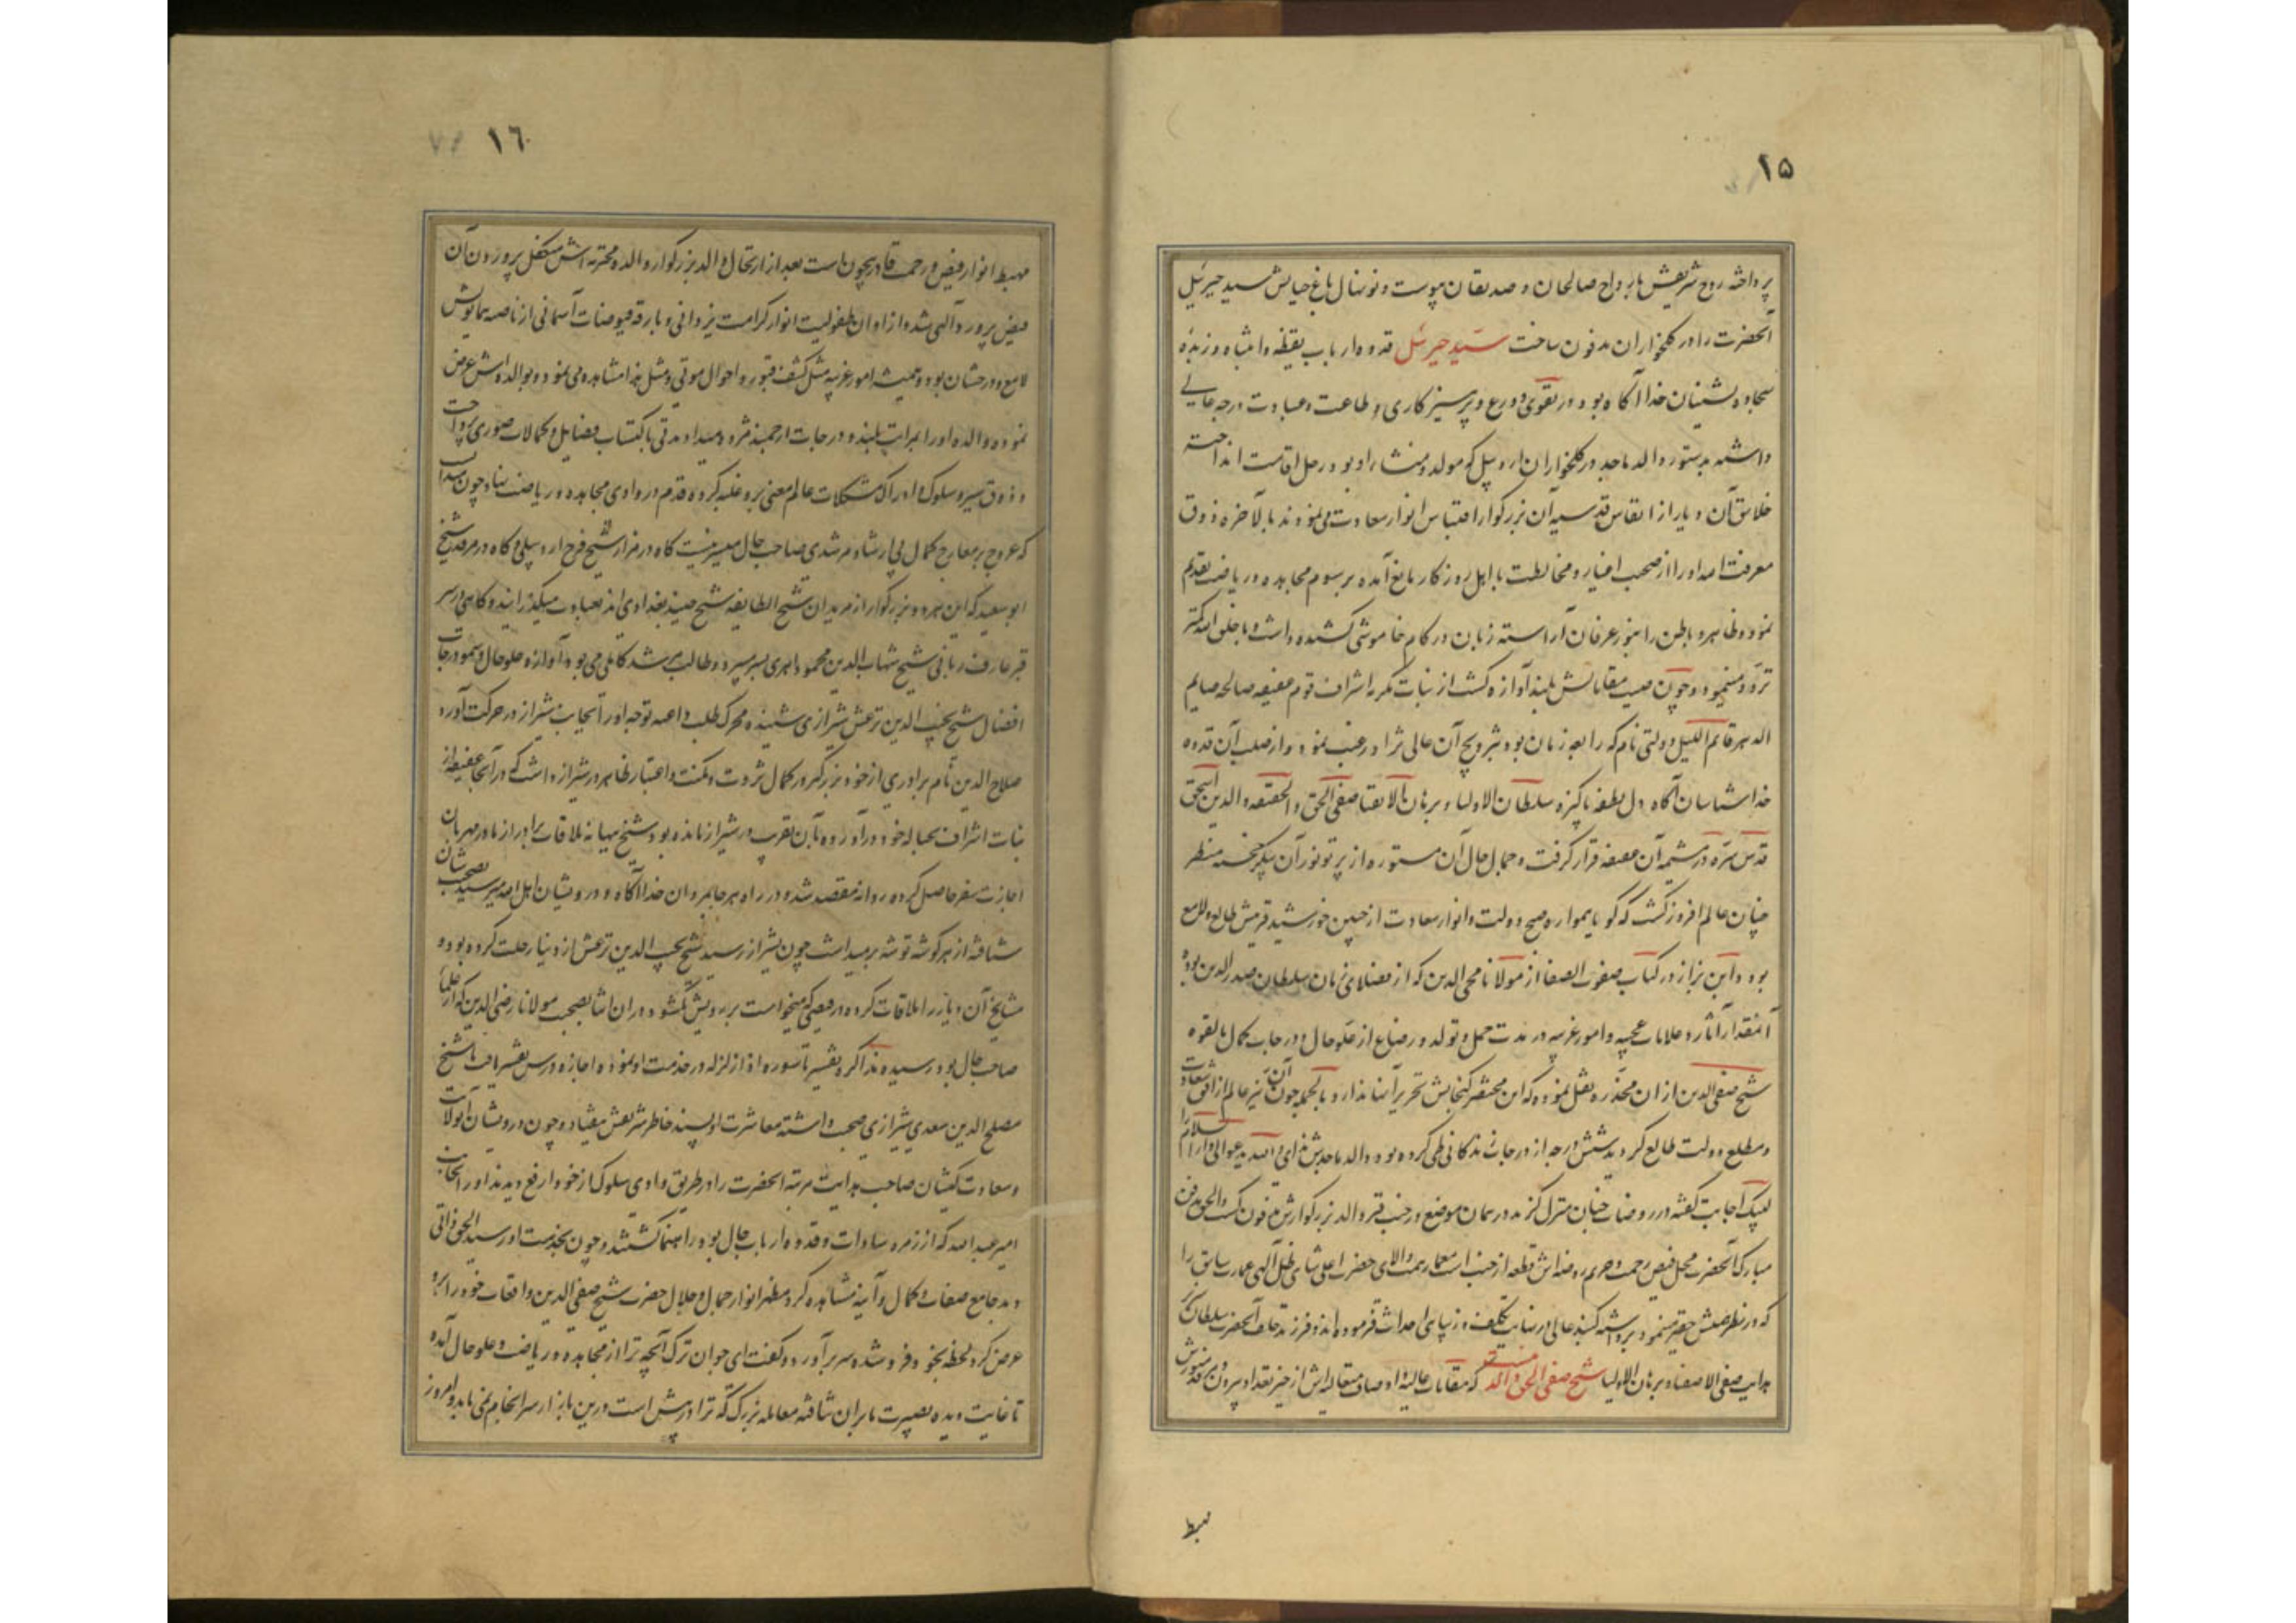 ۱۵
پرداخته روح شریفش بارواح صالحان و صدیقان پیوست و نونهال باغ حیاتش سید جبرئیل
آنحضرت را در کلخواران مدفون ساخت سید جبرئیل قدوه ارباب یقظه و انتباه و زبدهٔ
سجاده نشینان خدا آگاه بود در تقوی و ورع و پرهیزکاری و طاعت و عبادت درجه عالی
داشته بدستور والد ماجد در کلخواران اردبیل که مولد و منشاء او بود رحل اقامت انداخته
خلایق آن دیار از انفاس قدسیه آن بزرگوار اقتباس انوار سعادت می نمودند بالاخره ذوق
معرفت اله او را از صحبت اغیار و مخالطت با اهل روزگار مانع آمده برسوم مجاهده و ریاضت تقدیم
نمود و ظاهر و باطن را بنور عرفان آراسته زبان در کام خاموشی کشیده داشت و با خلق الله کمتر
تردد مینمود و چون صیت مقاماتش بلند آوازه گشت از بنات مکرمه اشراف قوم عفیفه صالحه صایم
الدهر قائم اللیل دولتی نام که رابعه زمان بود بتزویج آن عالی نژاد رغبت نمود و از صلب آن قدوه
خداشناسان آگاه دل نطفه پاکیزه سلطان الاولیا و برهان الاتقیا صفی الحق و الحقیقه و الدین اسحق
قدس سره در مشیمه آن عفیفه قرار گرفت و جمال حال آن مستوره از پرتو نور آن پیکر خجسته منظر
چنان عالم افروز گشت که گویا همواره صبح دولت و انوار سعادت از جبین خورشید قرینش طالع و لامع
بود و ابن بزاز در کتاب صفوت الصفا از مولانا محی الدین که از فضلای زمان سلطان صدر الدین بوده
آنمقدار آثار و علامات عجیبه و امور غریبه در مدت حمل و تولد و رضاع از علو حال و درجات کمال بالقوه
شیخ صفی الدین از ان مخدره نقل نموده که این مختصر گنجایش تحریر آنها ندارد بالجمله چون آن نیر عالم از افق سعادت
و مطلع دولت طالع گردید شش درجه از درجات زندگانی طی کرده بود والد ماجدش ندای و الله یدعوا الی دار السلام را
لبیک اجابت گفته در روضات جنان منزل گزید در همان موضع در جنب قبر والد بزرگوارش مدفون گشت الحق مدفن
مبارک آنحضرت محل فیض رحمت و حریم روضه اش قطعه از جنت است معمار همت والای حضرت اعلی شاهی ظل الهی عمارت سابق را
که در نظر همتش حقیر مینمود برداشته گنبد عالی در نهایت تکلف و زیبایی احداث فرموده اند و فرزند خلف آنحضرت سلطان سریر
هدایت صفی الاصفیا و برهان الاولیا شیخ صفی الحق و الدین است که مقامات عالیه و اوصاف متعالیه اش از حیز تعداد بیرون و مرقد منورش
مهبط
۱٦
مهبط انوار فیض و رحمت قادر بیچون است بعد از ارتحال والد بزرگوار والده محترمه اش متکفل پروردن آن
فیض پرورد آلهی شده از اوان طفولیت انوار کرامت یزدانی و بارقه فیوضات آسمانی از ناصیه همایونش
لامع و درخشان بود و همیشه امور غریبه مثل کشف قبور و احوال موتی و مثل هذا مشاهده می نمود و بوالده اش عرض
نموده والده او را بمراتب بلند و درجات ارجمند مژده میداد مدتی باکتساب فضایل و کمالات صوری پرداخت
و ذوق سیر و سلوک و ادراک مشکلات عالم معنی برو غلبه کرده قدم در وادی مجاهده و ریاضت نهاد چون میدانست
که عروج بر معارج کمال بی ارشاد مرشدی صاحب حال میسر نیست گاه در مزار شیخ فرح اردبیلی و گاه در مرقد شیخ
ابو سعید که این هر دو بزرگوار از مریدان شیخ الطایفه شیخ جنید بغدادی اند بعبادت میگذرانید و گاهی بر سر
قبر عارف ربانی شیخ شهاب الدین محمود اهری بسر میبرد و طالب مرشد کامل می بود آوازه علو حال و سمو درجات
افضال شیخ نجیب الدین بزغش شیرازی شنیده محرک طلب داعیه توجه او را بجانب شیراز در حرکت آورد
صلاح الدین نام برادری از خود بزرگتر در کمال ثروت و مکنت و اعتبار ظاهر در شیراز داشت که در آنجا عفیفه از
بنات اشراف بحباله خود در آورده بآن تقریب در شیراز مانده بود شیخ ببهانه ملاقات برادر از مادر مهربان
اجازت سفر حاصل کرده روانه مقصد شد و در راه هر جا بمردان خدا آگاه و درویشان اهل الله میرسید بصحبت شان
شتافته از هر گوشه توشه بر میداشت چون بشیراز رسید شیخ نجیب الدین بزغش از دنیا رحلت کرده بود و
مشایخ آن دیار را ملاقات کرده در فیضی که میخواست برویش نگشود در ان اثنا بصحبت مولانا رضی الدین که از علماء
صاحب حال بود رسیده مذاکره تفسیر تا سوره اذا زلزله در خدمت او نموده اجازه درس تفسیر یافت با شیخ
مصلح الدین سعدی شیرازی صحبت داشته معاشرت او پسند خاطر شریفش نیفتاد و چون درویشان آنولایت
و سعادت کیشان صاحب هدایت مرتبه آنحضرت را در طریق وادی سلوک از خود ارفع دیدند او را بجانب
امیر عبدالله که از زمره سادات و قدوه ارباب حال بود راهنما گشتند و چون بخدمت او رسید الحق ذاتی
دید جامع صفات کمال و آینه مشاهده کرد مظهر انوار جمال و جلال حضرت شیخ صفی الدین واقعات خود را برو
عرض کرد لحظه بخود فرو شده سر بر آورد و گفت ای جوان ترک آنچه ترا از مجاهده و ریاضت و علو حال آمده
تا غایت دیده بصیرت ما بر آن نتافته معامله بزرگ که ترا در پیش است درین بازار سرانجام نمی یابد و امروز